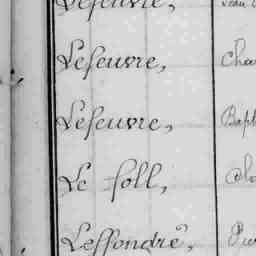 Lefeuvre,
Lefeuvre, Cha
Lefeuvre, Bapt
Le foll,
Leffondré,